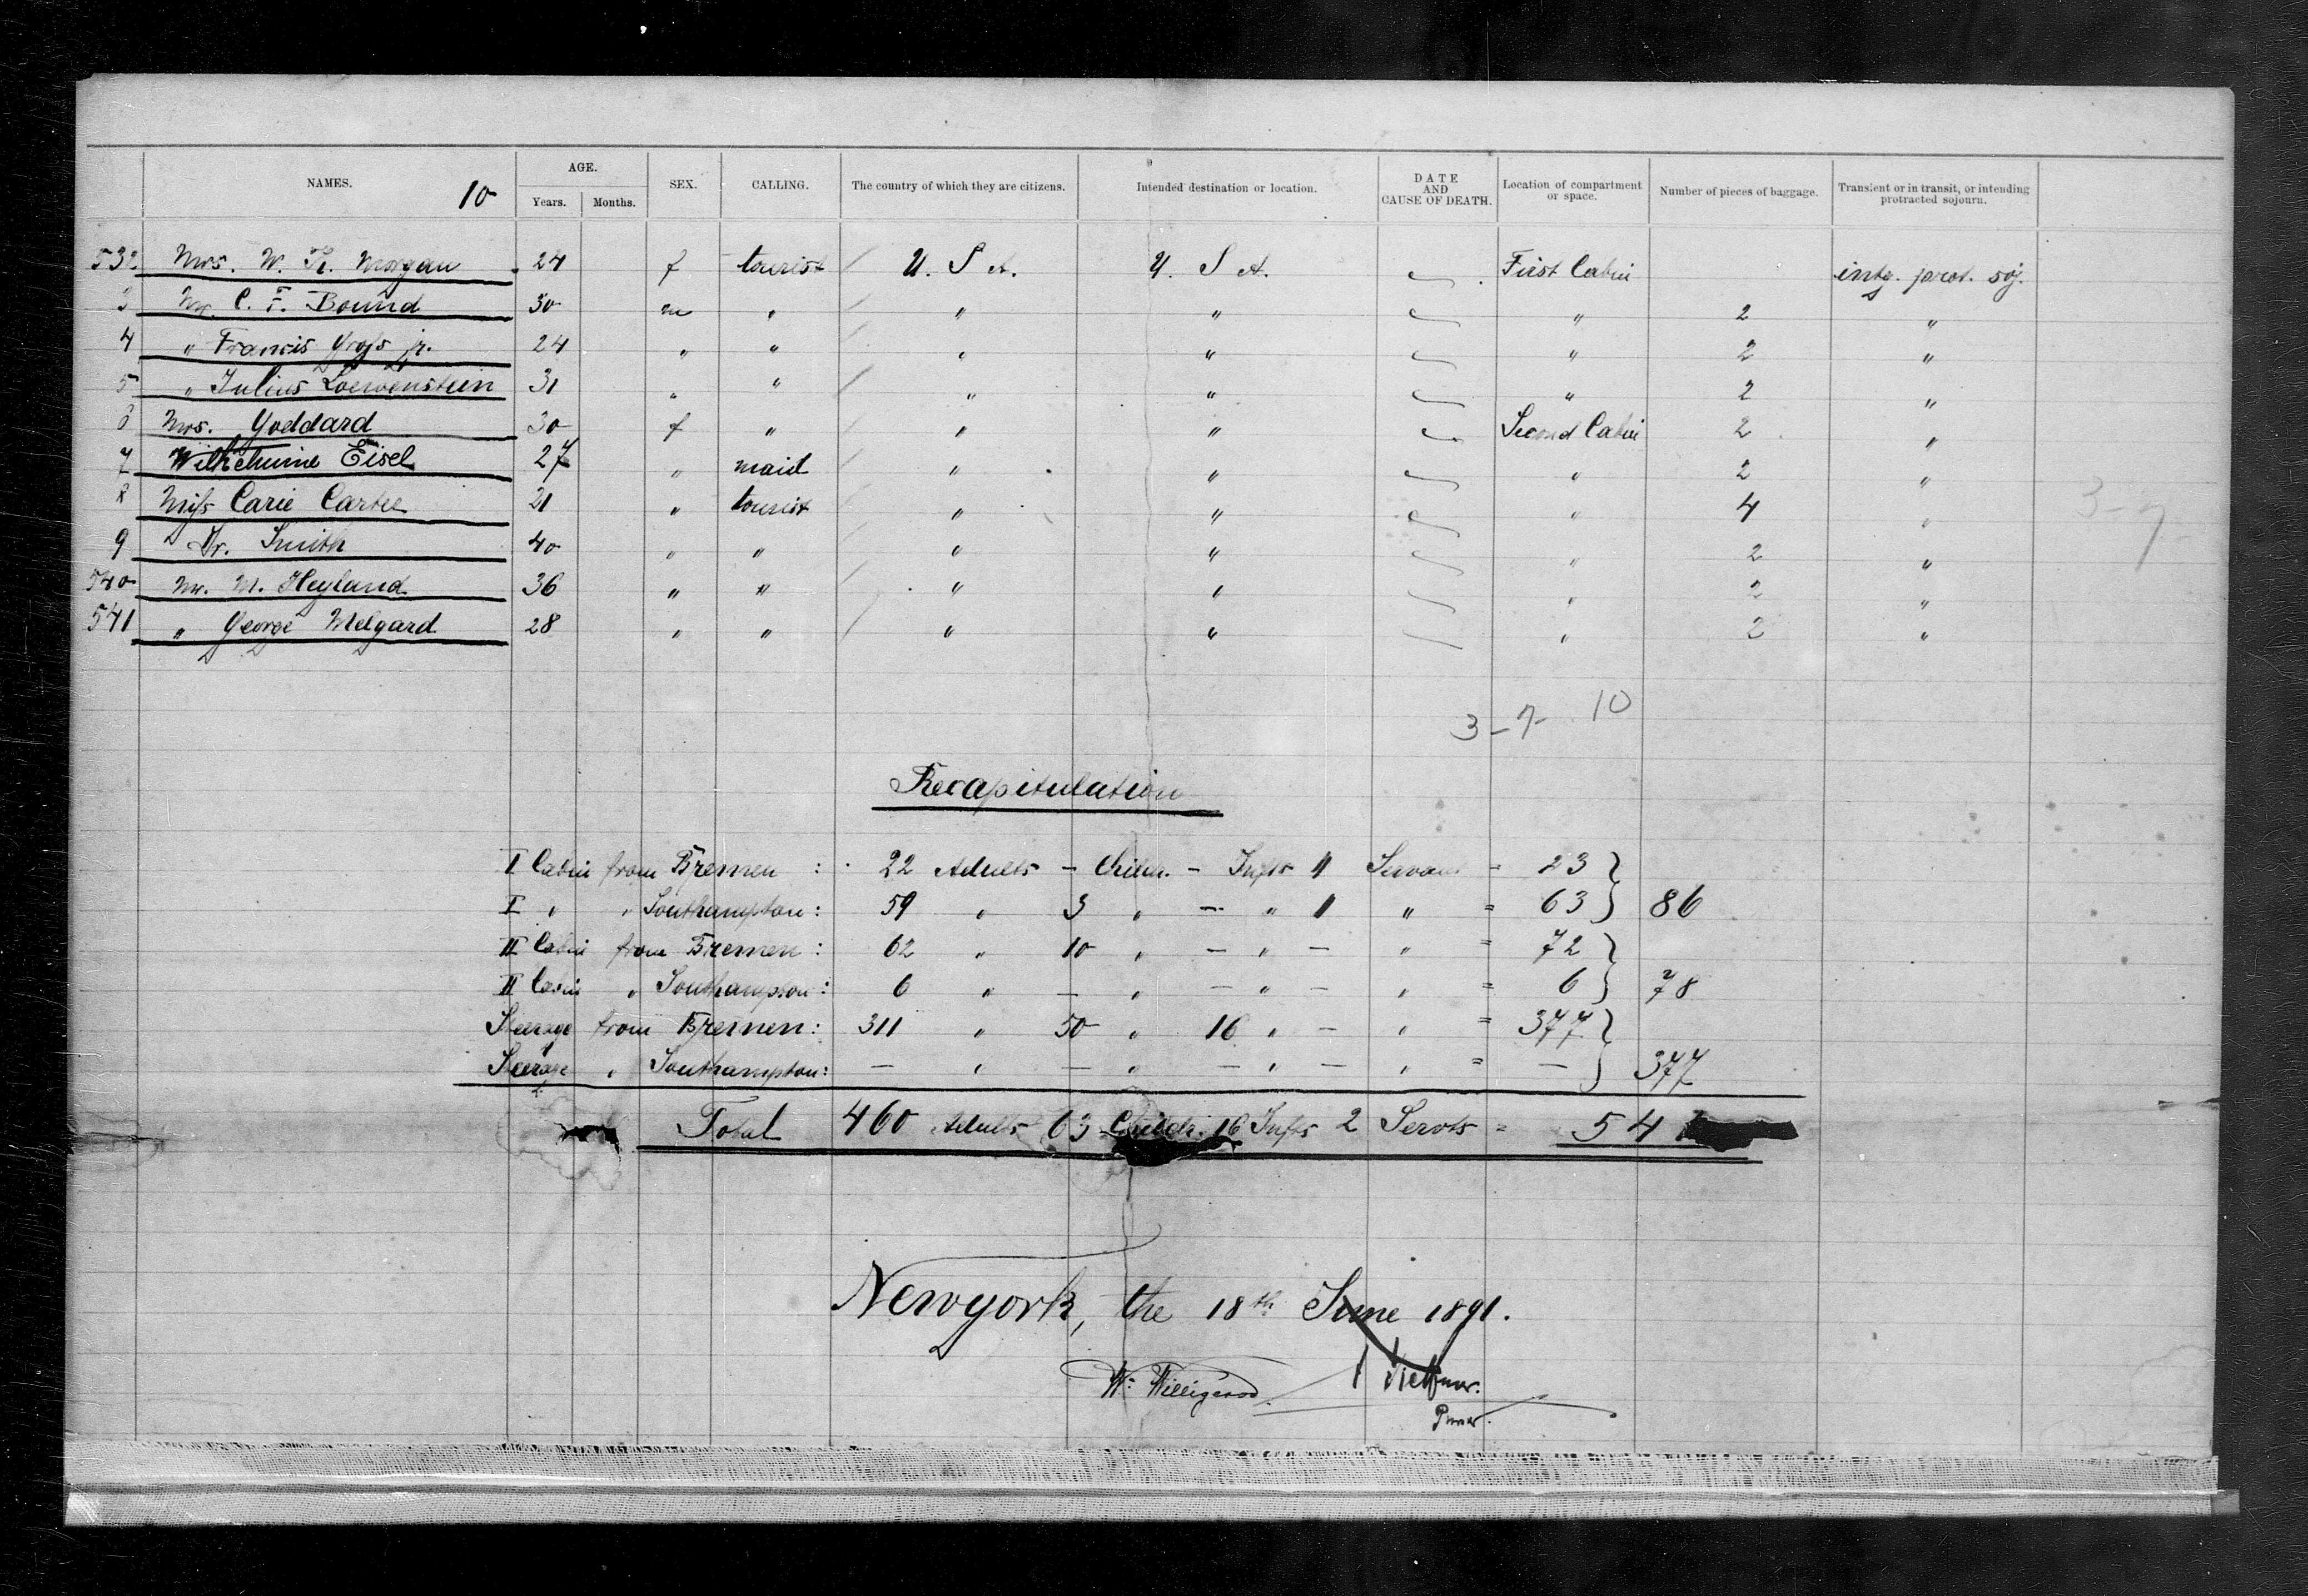 NAMES. 10 AGE. Years. Months. SEX. CALLING. The country of which they are citizens. Intended destination or location. DATE AND CAUSE OF DEATH. Location of compartment or space. Number of pieces of baggage. Transient or in transit, or intending protracted sojourn.
532 Mrs. W. R. Morgan 24 f tourist U. S A. U. S A. First Cabin intg. prot. soj.
3 Mr. C. F. Bound 30 m " " " " 2 "
4 " Francis Gross jr. 24 " " " " " 2 "
5 " Julius Loewenstein 31 " " " " " 2 "
6 Mrs. Goddard 30 f " " " Second Cabin 2 "
7 Wilhelmine Eisel 27 " maid " " " 2 "
8 Miss Carie Carter 21 " tourist " " " 4 "
9 " Dr. Smith 40 " " " " " 2 "
540 Mr. M. Heyland 36 " " " " " 2 "
541 " George Melgard 28 " " " " " 2 "
3-7
3-7- 10
Recapitulation
I Cabin from Bremen : 22 Adults - Childr. - Infts 1 Servant = 23
I " " Southampton : 59 " 3 " - " 1 " = 63 } 86
II Cabin from Bremen : 62 " 10 " - " - " = 72
II Cabin " Southampton : 6 " - " - " - " = 6 } 78
Steerage from Bremen : 311 " 50 " 16 " - " = 377
Steerage " Southampton : - " - " - " - " = - } 377
Total 460 Adults 63 Childr. 16 Infts 2 Servts = 541
Newyork, the 18th June 1891.
W. Willigerod
Purser.